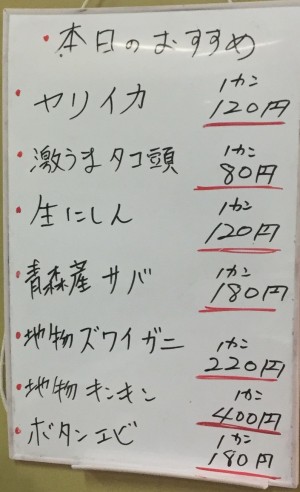 ・本日のおすすめ
・ヤリイカ 1カン 120円
・激うまタコ頭 1カン 80円
・生にしん 1カン 120円
・青森産サバ 1カン 180円
・地物ズワイガニ 1カン 220円
・地物キンキン 1カン 400円
・ボタンエビ 1カン 180円